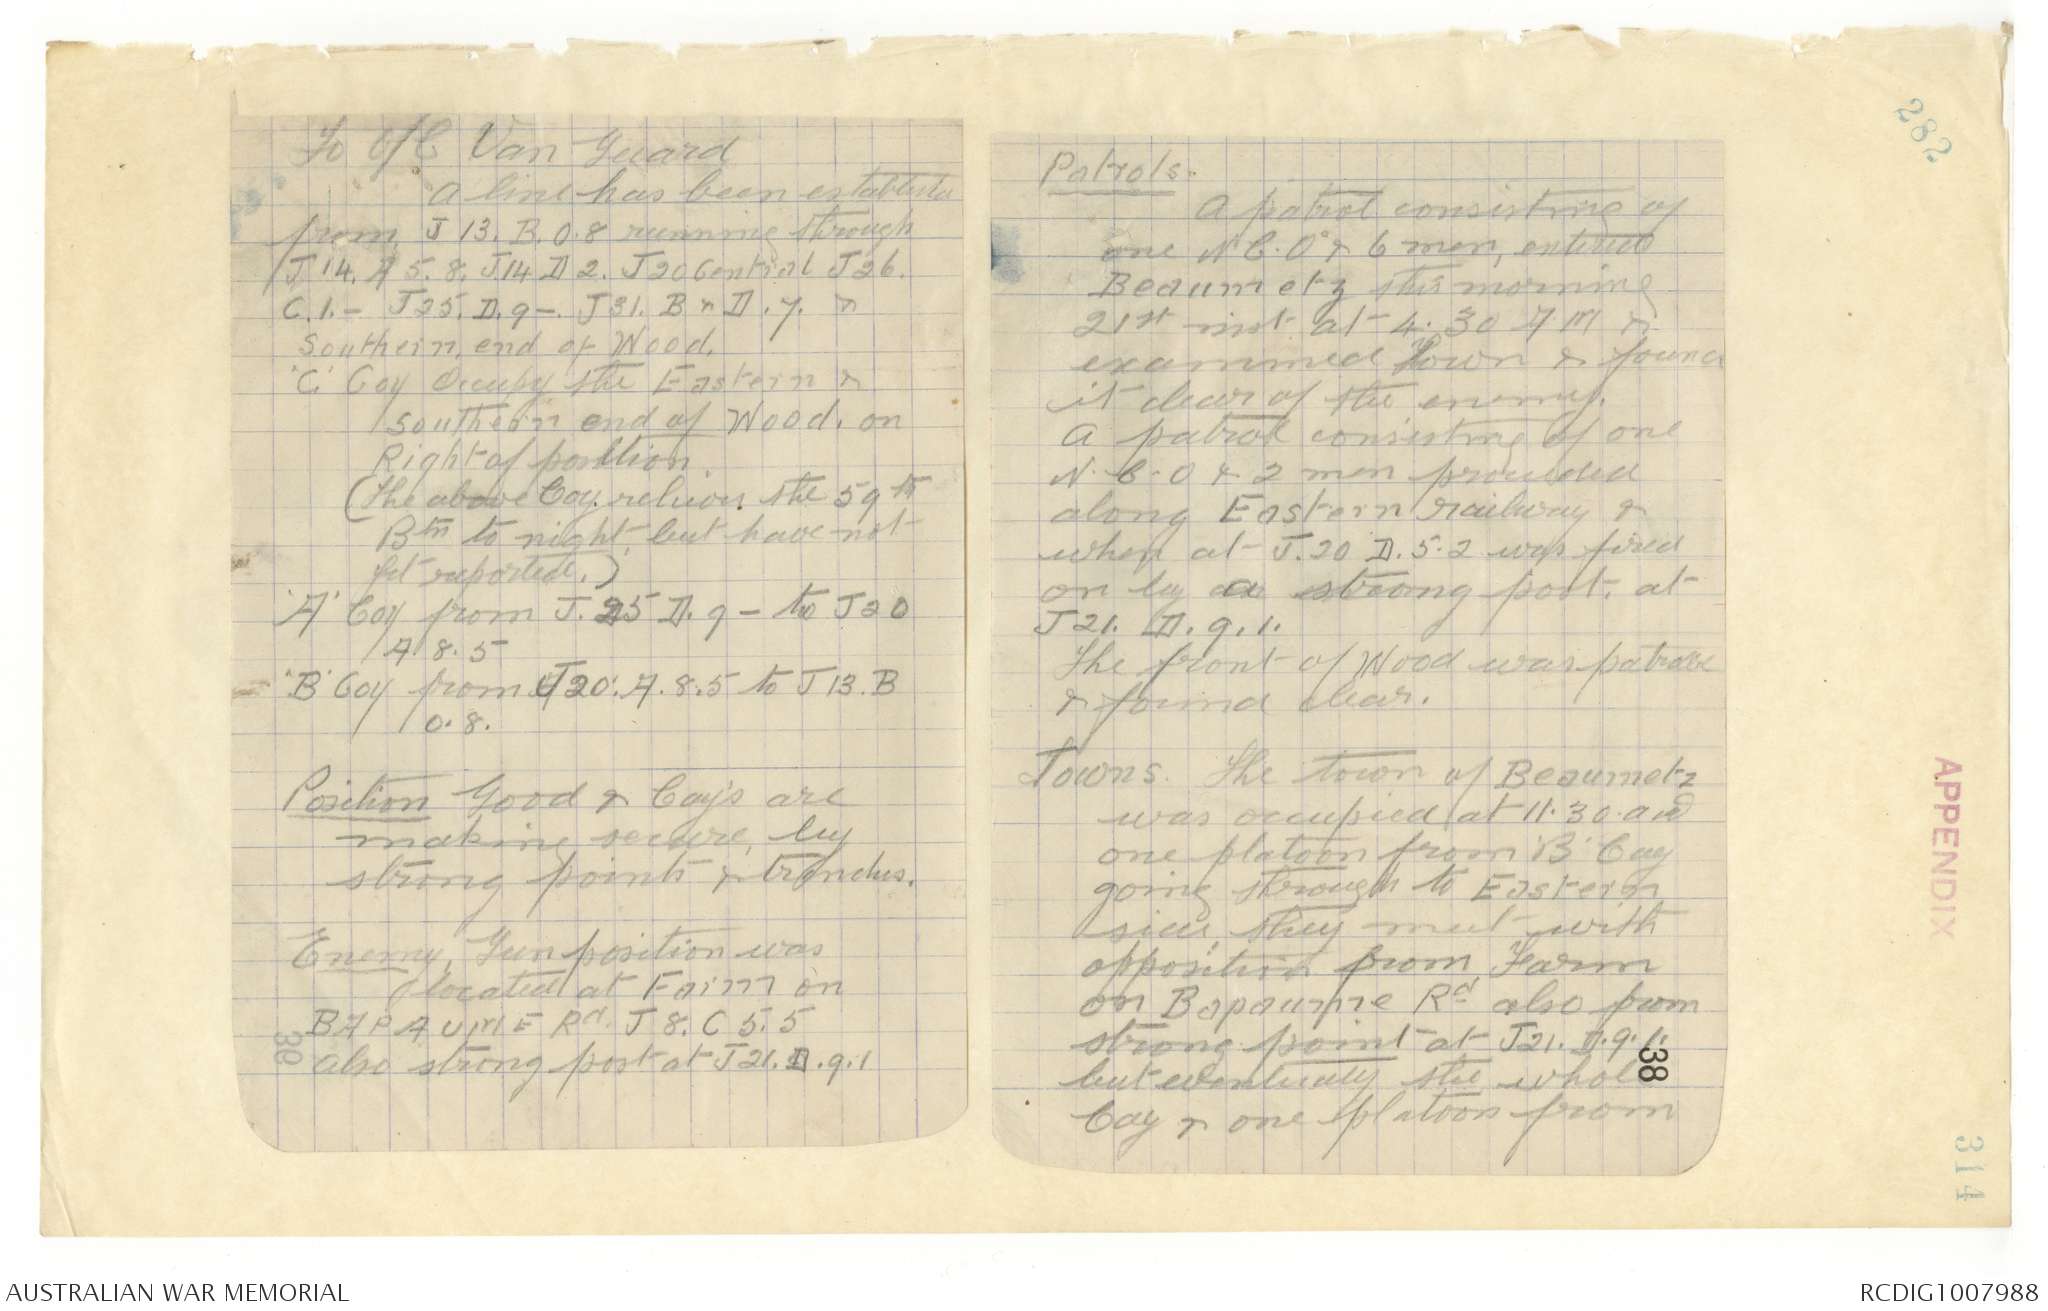 To O/C Van Guard
A line has been established
from J 13. B. 0.8 running through
J 14. A 5. 8. J14 D 2. J20 Central J26.
C. 1. - J25. D. 9 -. J31. B & D. 7. &
Southern end of Wood.
'C' Coy Occupy the Eastern &
southern end of Wood. on
Right of position.
(The above Coy. relieves the 59th
Btn to night but have not
yet reported.)
'A' Coy from J. 25 D. 9 - to J20
A. 8. 5
'B' Coy from J20. A. 8. 5 to J 13. B
0. 8.
Position Good & Coy's are
making secure, by
strong points & trenches.
Enemy, Gun position was
located at Farm on
BAPAUME Rd. J 8. C 5. 5
also strong post at J 21. D. 9. 1
Patrols.
A patrol consisting of
one N.C.O & 6 men, entered
Beaumetz this morning
21st inst at 4.30 AM &
examined Town & found
it clear of the enemy.
A patrol consisting of one
N.C.O & 2 men proceeded
along Eastern railway &
when at J.20 D. 5.2 was fired
on by a strong post. at
J21. D. 9. 1.
The front of Wood was patrolled
& found clear.
Towns. The town of Beaumetz
was occupied at 11.30. and
one platoon from 'B' Coy
going through to Eastern
side, they meet with
opposition from Farm
on Bapaume Rd also from
strong point at J21. D. 9. 1.
but eventually the whole
Coy & one platoon from
38
38
282
APPENDIX
314
AUSTRALIAN WAR MEMORIAL
RCDIG1007988